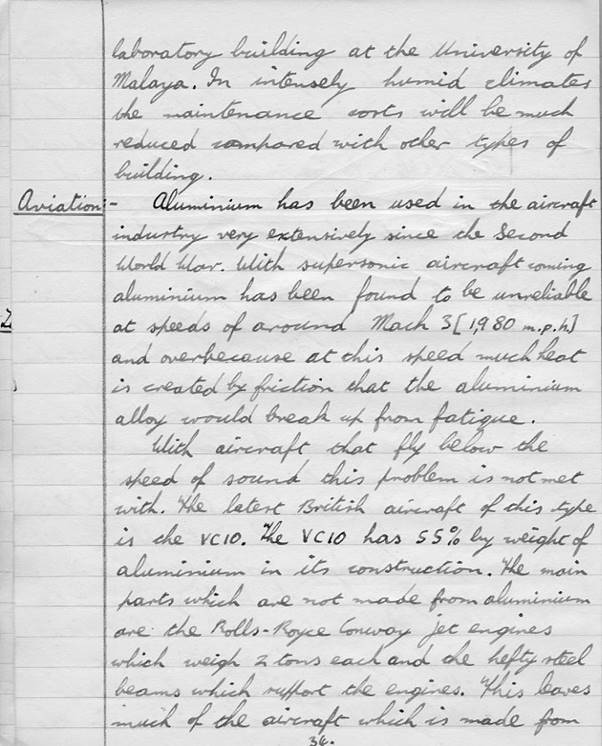 laboratory building at the University of
Malaya. In intensely humid climates
the maintenance costs will be much
reduced compared with other types of
building.
Aviation:- Aluminium has been used in the aircraft
industry very extensively since the Second
World War. With supersonic aircraft coming
aluminium has been found to be unreliable
at speeds of around Mach 3 [1,980 m.p.h]
and overbecause at this speed much heat
is created by friction that the aluminium
alloy would break up from fatigue.
With aircraft that fly below the
speed of sound this problem is not met
with. The latest British aircraft of this type
is the VC10. The VC10 has 55% by weight of
aluminium in its construction. The main
parts which are not made from aluminium
are the Rolls-Royce Conway jet engines
which weigh 2 tons each and the hefty steel
beams which support the engines. This leaves
much of the aircraft which is made from
36.